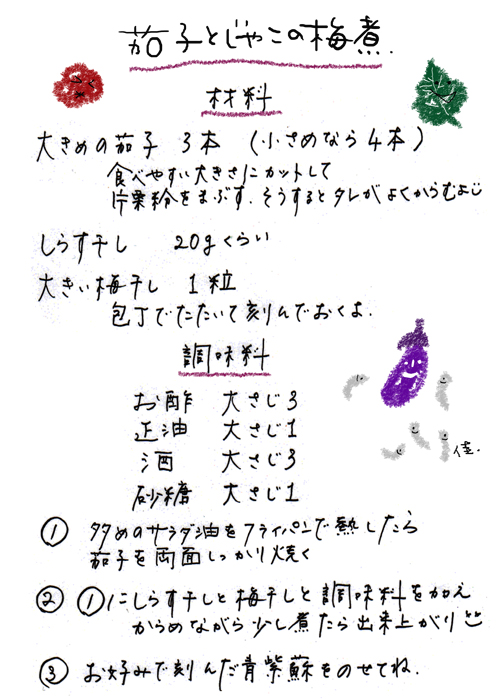 茄子とじゃこの梅煮.
材料
大きめの茄子 3本 (小さめなら4本)
食べやすい大きさにカットして
片栗粉をまぶす. そうするとタレがよくからむよ
しらす干し 20gくらい
大きい梅干し 1粒
包丁でたたいて刻んでおくよ.
調味料
お酢 大さじ3
正油 大さじ1
酒 大さじ3
砂糖 大さじ1
佳.
① 多めのサラダ油をフライパンで熱したら
茄子を両面しっかり焼く
② ①にしらす干しと梅干しと調味料を加え
からめながら少し煮たら出来上がり
③ お好みで刻んだ青紫蘇をのせてね.